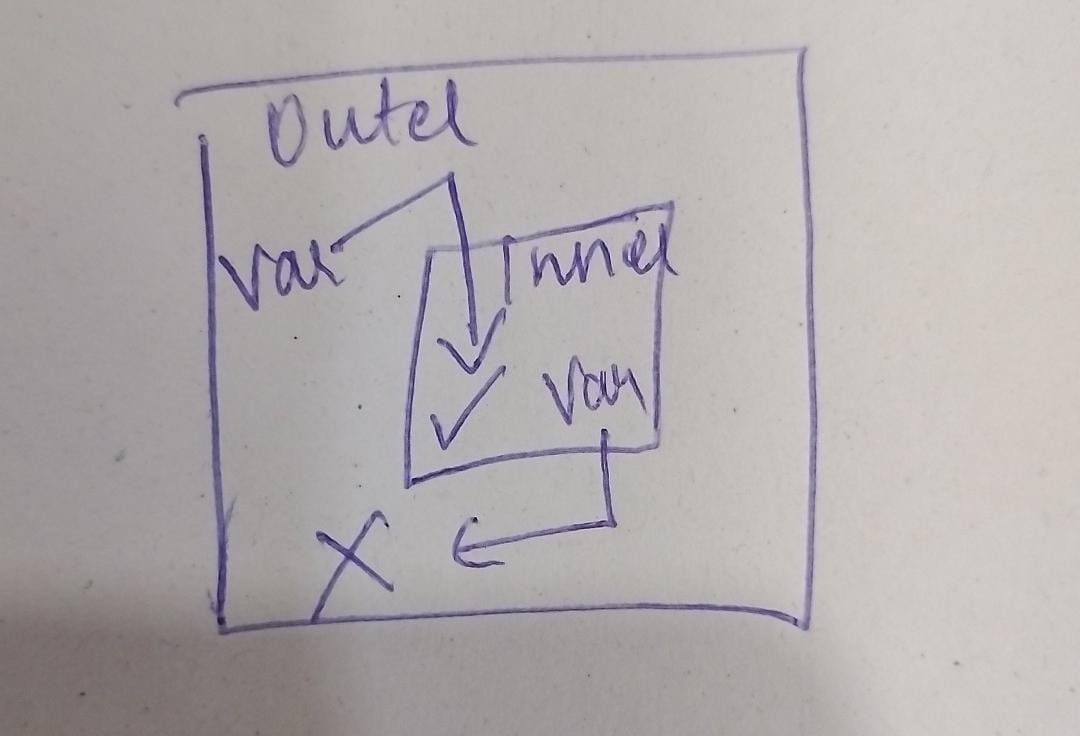 Outer
var
Inner
var